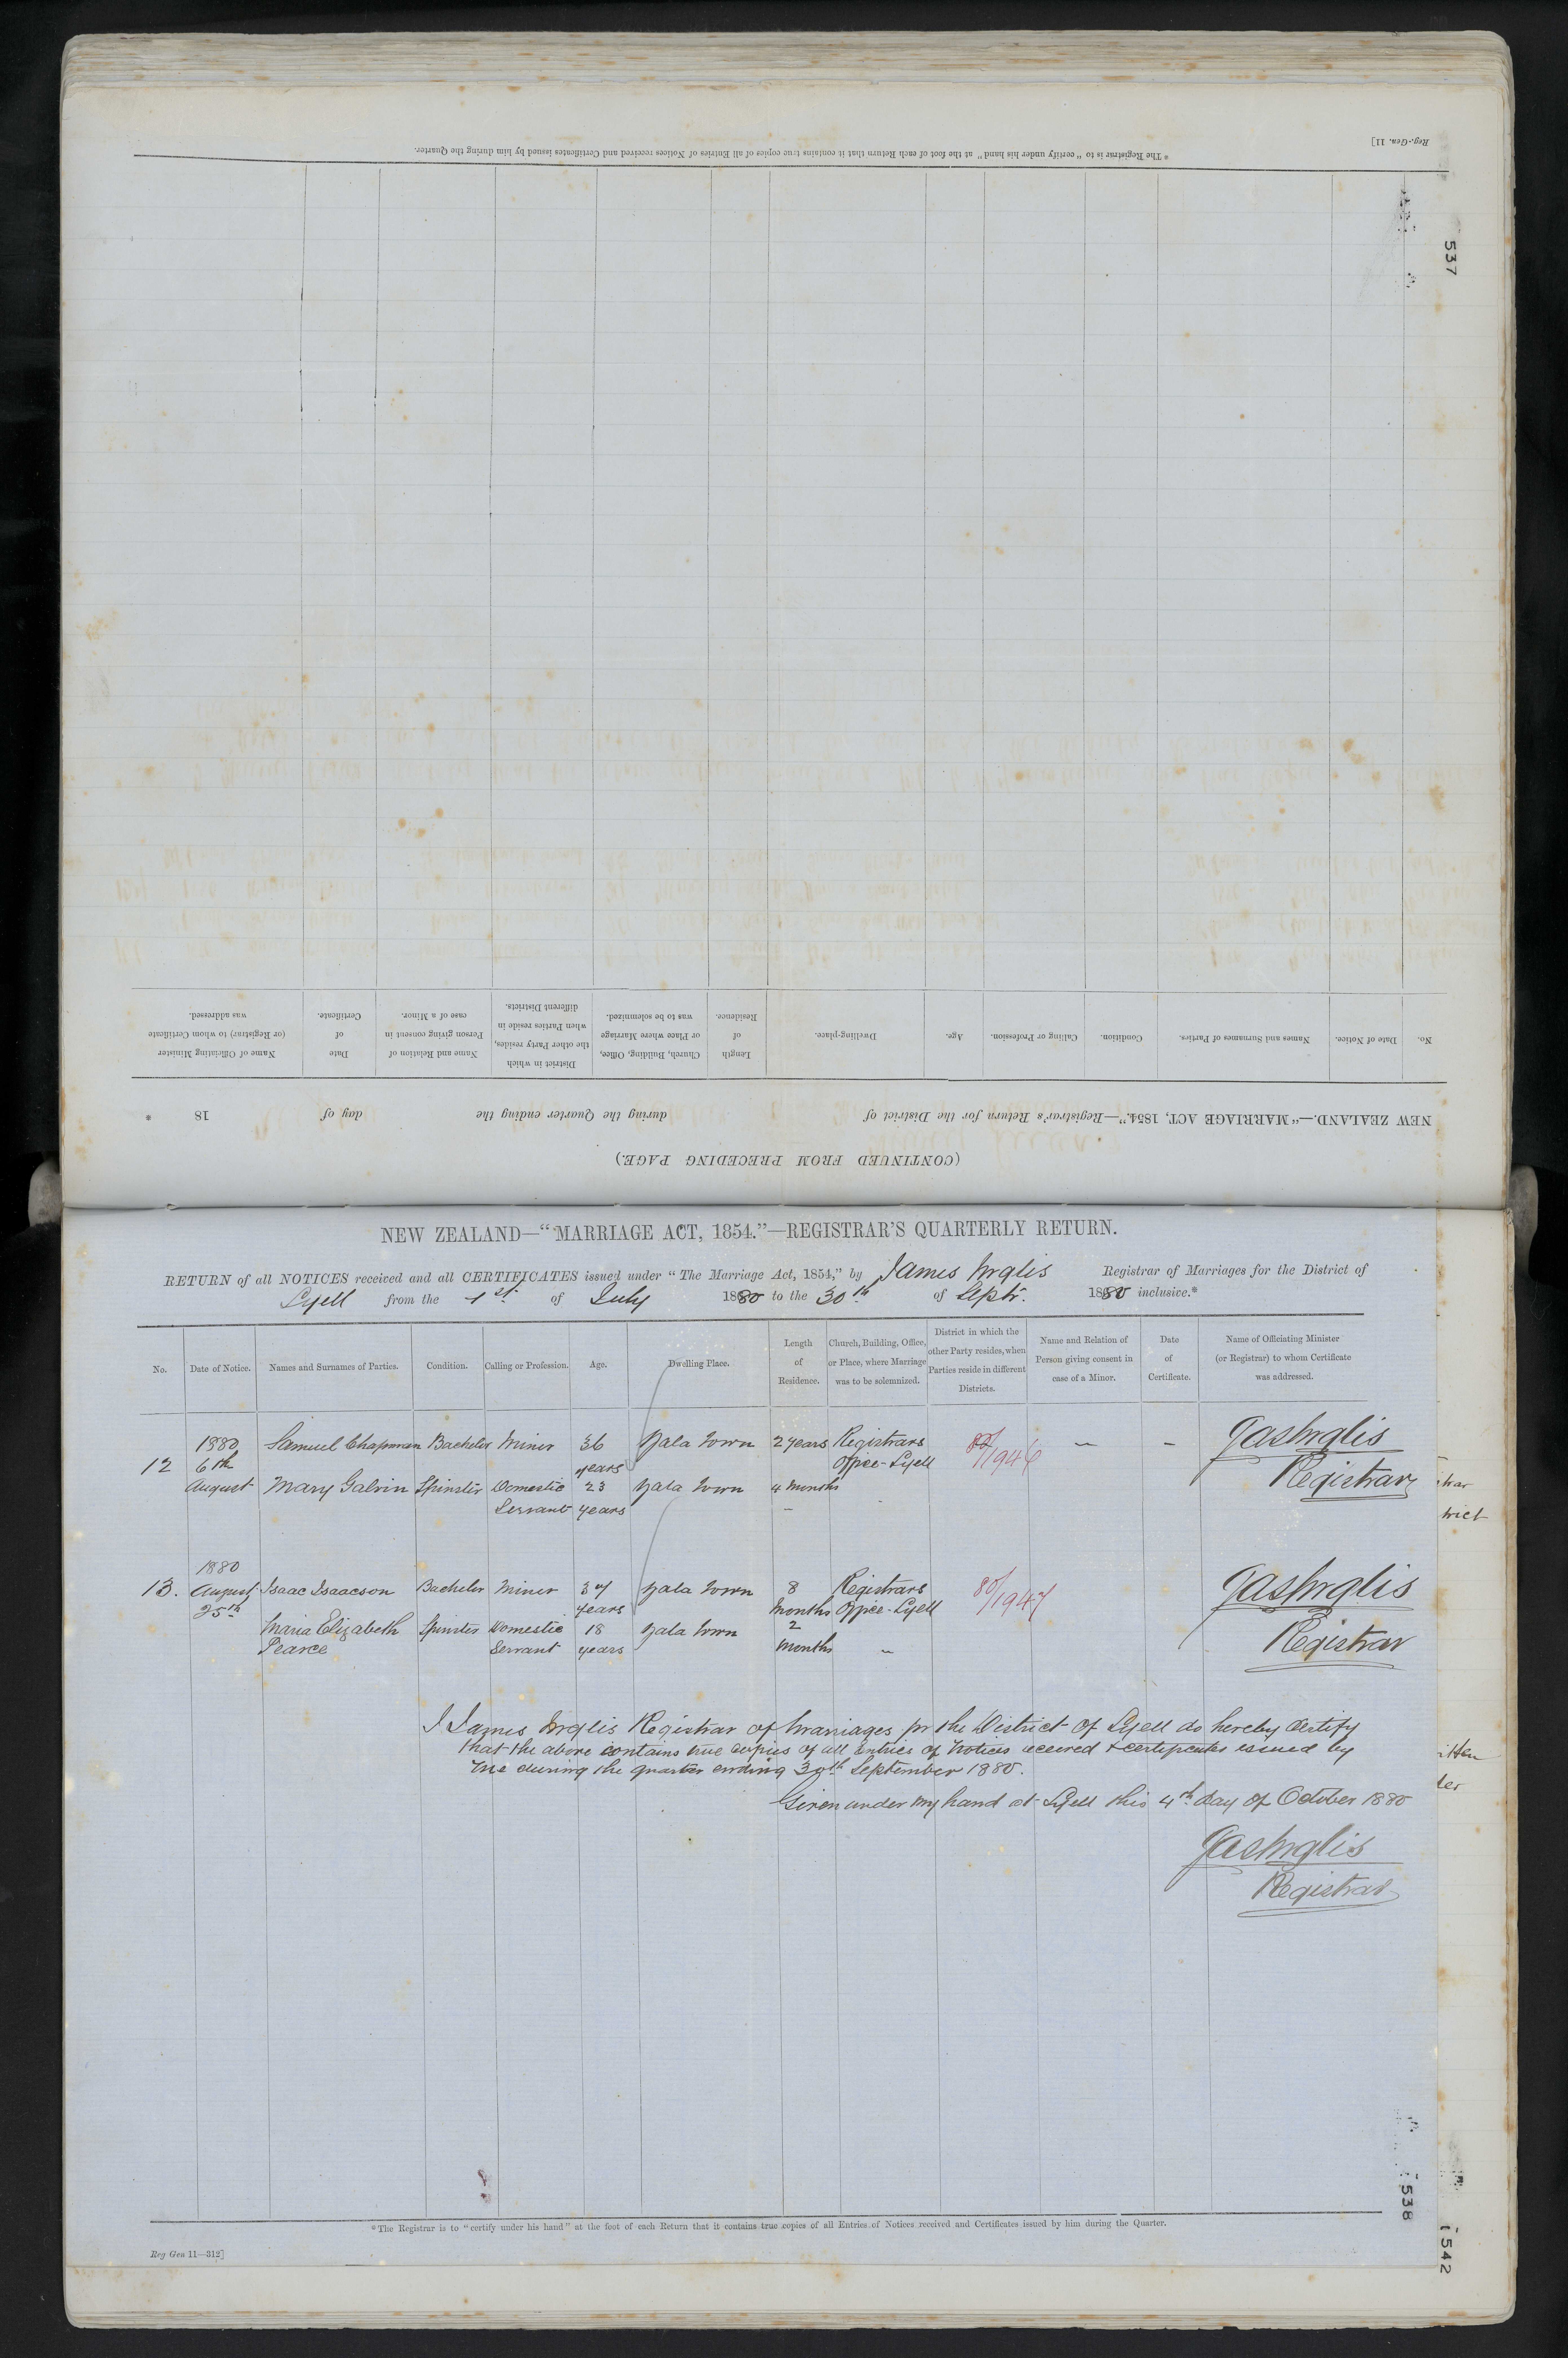 * The Registrar is to "certify under his hand" at the foot of each Return that it contains true copies of all Entries of Notices received and Certificates issued by him during the Quarter.
Reg.-Gen. 11]
537
(CONTINUED FROM PRECEDING PAGE.)
NEW ZEALAND.—"MARRIAGE ACT, 1854."—Registrar's Return for the District of during the Quarter ending the day of 18 *
No. Date of Notice. Names and Surnames of Parties. Condition. Calling or Profession. Age. Dwelling-place. Length of Residence. Church, Building, Office, or Place where Marriage was to be solemnized. District in which the other Party resides, when Parties reside in different Districts. Name and Relation of Person giving consent in case of a Minor. Date of Certificate. Name of Officiating Minister (or Registrar) to whom Certificate was addressed.
NEW ZEALAND—"MARRIAGE ACT, 1854."—REGISTRAR'S QUARTERLY RETURN.
RETURN of all NOTICES received and all CERTIFICATES issued under "The Marriage Act, 1854," by James Inglis Registrar of Marriages for the District of
Lyell from the 1st of July 1880 to the 30th of Septr. 1880 inclusive.*
No. Date of Notice. Names and Surnames of Parties. Condition. Calling or Profession. Age. Dwelling Place. Length of Residence. Church, Building, Office, or Place, where Marriage was to be solemnized. District in which the other Party resides, when Parties reside in different Districts. Name and Relation of Person giving consent in case of a Minor. Date of Certificate. Name of Officiating Minister (or Registrar) to whom Certificate was addressed.
1880 Samuel Chapman Bachelor Miner 36 Zala Town 2 years Registrars 80/1946 — — Jas Inglis
12 6th years Office - Lyell Registrar
August Mary Galvin Spinster Domestic 23 Zala Town 4 months
Servant years
1880
13. August Isaac Isaacson Bachelor Miner 37 Zala Town 8 Registrars 80/1947 Jas Inglis
25th years months Office - Lyell
Maria Elizabeth Spinster Domestic 18 Zala Town 2 Registrar
Pearce Servant years months
I James Inglis Registrar of Marriages for the District of Lyell do hereby Certify
that the above contains true copies of all Entries of Notices received & certificates issued by
me during the quarter ending 30th September 1880.
Given under my hand at Lyell this 4th day of October 1880
Jas Inglis
Registrar
538
542
* The Registrar is to "certify under his hand" at the foot of each Return that it contains true copies of all Entries of Notices received and Certificates issued by him during the Quarter.
Reg Gen 11—312]